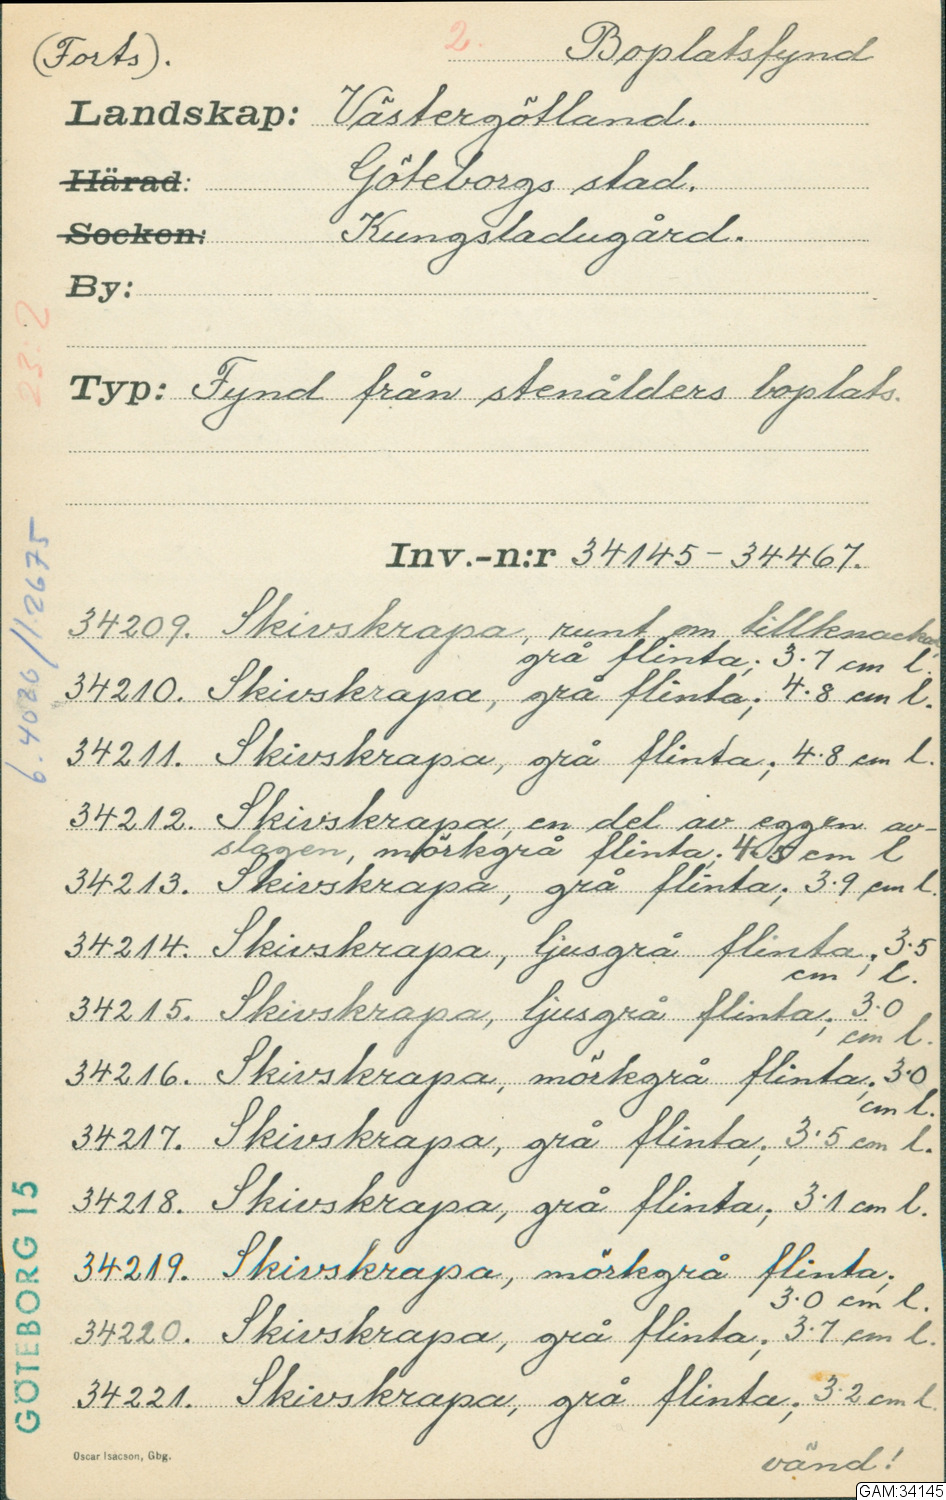 (Forts).
2. Boplatsfynd
Landskap: Västergötland.
Härad: Göteborgs stad.
Socken: Kungsladugård.
By:
Typ: Fynd från stenålders boplats.
Inv.-n:r 34145 - 34467.
34209. Skivskrapa, runt om tillknackad,
grå flinta; 3.7 cm l.
34210. Skivskrapa, grå flinta; 4.8 cm l.
34211. Skivskrapa, grå flinta; 4.8 cm l.
34212. Skivskrapa, en del av eggen av-
slagen, mörkgrå flinta; 4.5 cm l
34213. Skivskrapa, grå flinta; 3.9 cm l.
34214. Skivskrapa, ljusgrå flinta; 3.5
cm l.
34215. Skivskrapa, ljusgrå flinta; 3.0
cm l.
34216. Skivskrapa, mörkgrå flinta; 3.0
cm l.
34217. Skivskrapa, grå flinta; 3.5 cm l.
34218. Skivskrapa, grå flinta; 3.1 cm l.
34219. Skivskrapa, mörkgrå flinta;
3.0 cm l.
34220. Skivskrapa, grå flinta; 3.7 cm l.
34221. Skivskrapa, grå flinta; 3.2 cm l.
Oscar Isacson, Gbg.
vänd!
23:2
6.4026/1.2675
GÖTEBORG 15
GAM:34145